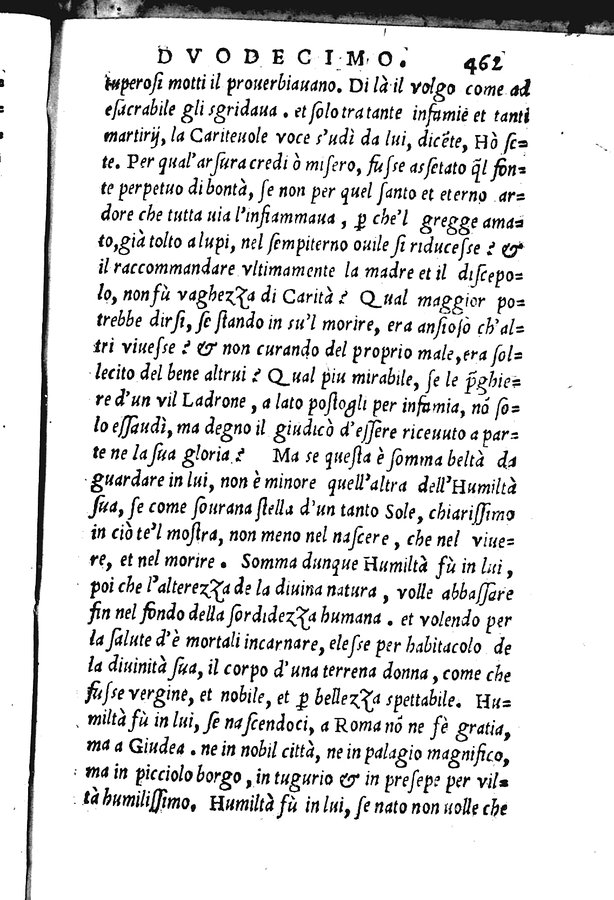 DVODECIMO. 462
tuperosi motti il prouerbiauano. Di là il volgo come ad
esacrabile gli sgridaua. et solo tra tante infamie et tanti
martirij, la Cariteuole voce s'udì da lui, dicẽte, Hò se=
te. Per qual'arsura credi ò misero, fusse assetato q̃l fon=
te perpetuo di bontà, se non per quel santo et eterno ar=
dore che tutta uia l'infiammaua, ꝑ che'l gregge ama=
to, già tolto a lupi, nel sempiterno ouile si riducesse? &
il raccommandare vltimamente la madre et il discepo=
lo, non fù vaghezza di Carità? Qual maggior po=
trebbe dirsi, se stando in su'l morire, era ansioso ch'al=
tri viuesse? & non curando del proprio male, era sol=
lecito del bene altrui? Qual piu mirabile, se le p̃ghie=
re d'un vil Ladrone, a lato postogli per infamia, nõ so=
lo essaudì, ma degno il giudicò d'essere riceuuto a par=
te ne la sua gloria? Ma se questa è somma beltà da
guardare in lui, non è minore quell'altra dell'Humiltà
sua, se come sourana stella d'un tanto Sole, chiarissimo
in ciò te'l mostra, non meno nel nascere, che nel viue=
re, et nel morire. Somma dunque Humiltà fù in lui,
poi che l'alterezza de la diuina natura, volle abbassare
fin nel fondo della sordidezza humana. et volendo per
la salute d'è mortali incarnare, elesse per habitacolo de
la diuinità sua, il corpo d'una terrena donna, come che
fusse vergine, et nobile, et ꝑ bellezza spettabile. Hu=
miltà fù in lui, se nascendoci, a Roma nõ ne fè gratia,
ma a Giudea. ne in nobil città, ne in palagio magnifico,
ma in picciolo borgo, in tugurio & in presepe per vil=
tà humilissimo. Humiltà fù in lui, se nato non uolle che